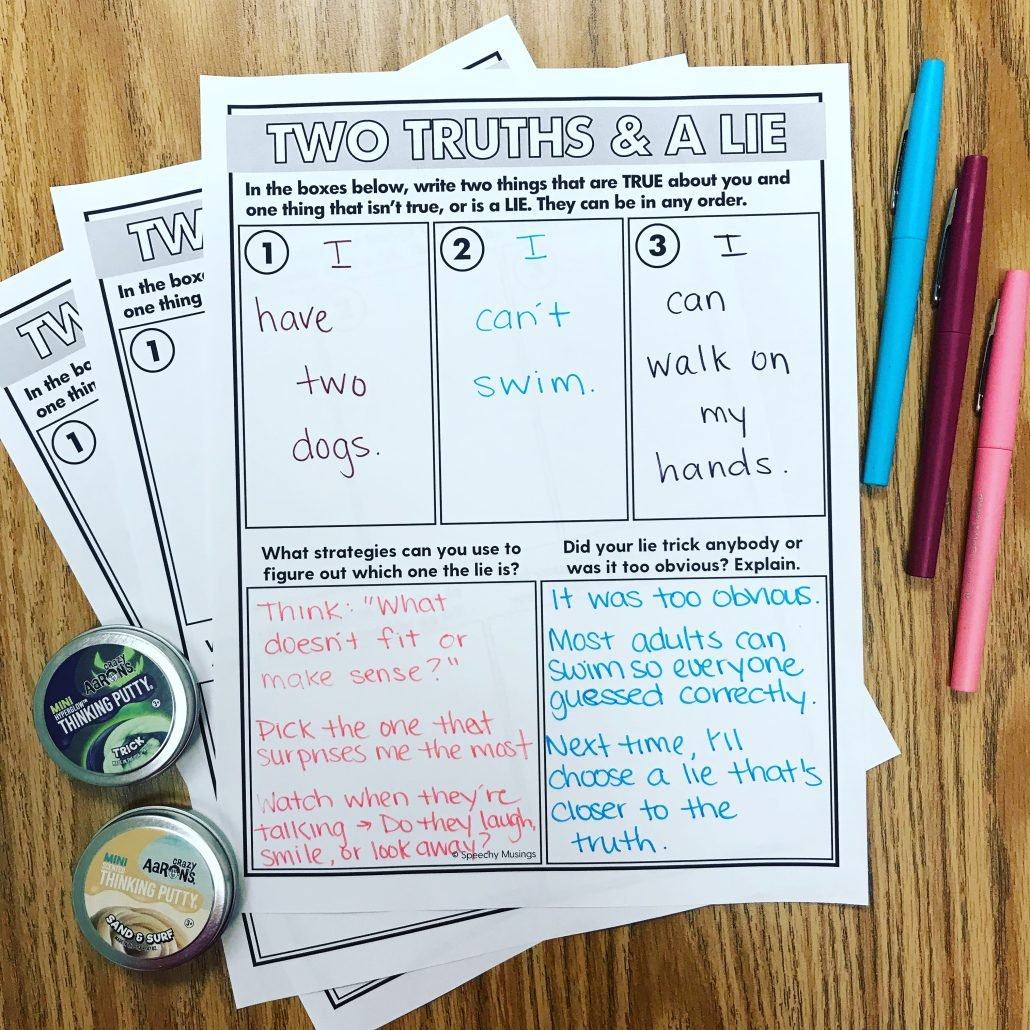 TWO TRUTHS & A LIE
In the boxes below, write two things that are TRUE about you and
one thing that isn't true, or is a LIE. They can be in any order.
1 I
have
two
dogs.
2 I
can't
swim.
3 I
can
walk on
my
hands.
What strategies can you use to
figure out which one the lie is?
Think: "What
doesn't fit or
make sense?"
Pick the one that
surprises me the most
Watch when they're
talking → Do they laugh,
smile, or look away?
© Speechy Musings
Did your lie trick anybody or
was it too obvious? Explain.
It was too obvious.
Most adults can
swim so everyone
guessed correctly.
Next time, I'll
choose a lie that's
closer to the
truth.
TW
In the box
one thing
1
TW
In the bo
one thin
1
CRAZY
AARON'S
MINI
HYPERGLOW
THINKING PUTTY
TRICK
CRAZY
AARON'S
MINI
THINKING PUTTY
SAND & SURF
3+